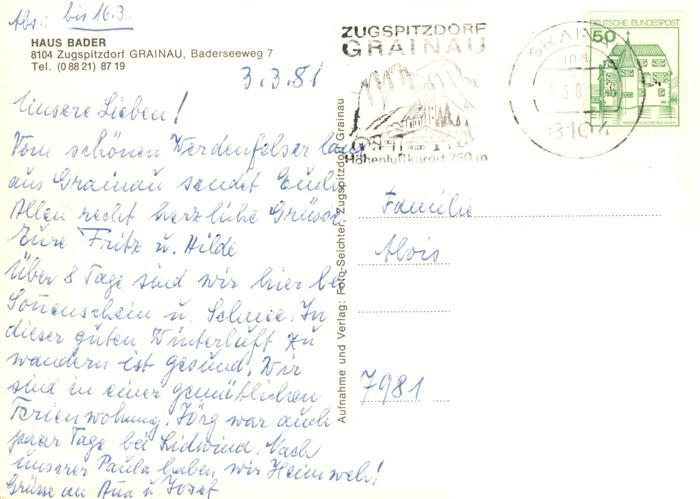 Abs.: bis 16.3.
HAUS BADER
8104 Zugspitzdorf GRAINAU, Baderseeweg 7
Tel. (0 88 21) 87 19
3.3.81
Unsere Lieben!
Vom schönen Werdenfelser land
aus Grainau sendet Euch
Allen recht herzliche Grüsse
Eure Fritz u. Hilde
Über 8 Tage sind wir hier bei
Sonnenschein u. Schnee. In
dieser guten Winterluft zu
wandern ist gesund. Wir
sind in einer gemütlichen
Ferienwohnung. Jörg war auch
paar Tage bei Lidwind. Nach
unserer Paula haben wir Heimweh!
Grüsse an Ana u. Josef
Aufnahme und Verlag: Foto-Seichter, Zugspitzdorf Grainau
ZUGSPITZDORF
GRAINAU
Höhenluftkurort 750 m
GRAINAU
8104
DEUTSCHE BUNDESPOST
50
Familie
Alois
7981